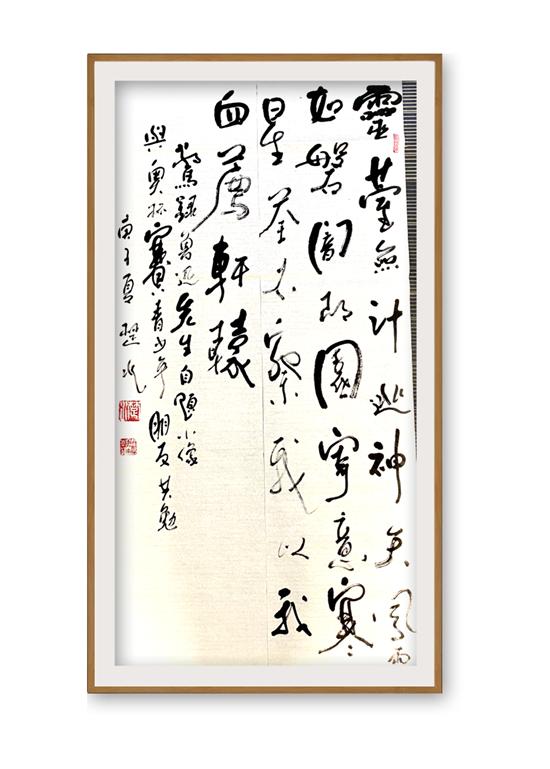 靈臺無計逃神矢風雨
如磐闇故園寄意寒
星荃不察我以我
血薦軒轅
敬錄魯迅先生自題小像
與奧杯賽青少年朋友共勉
庚子夏